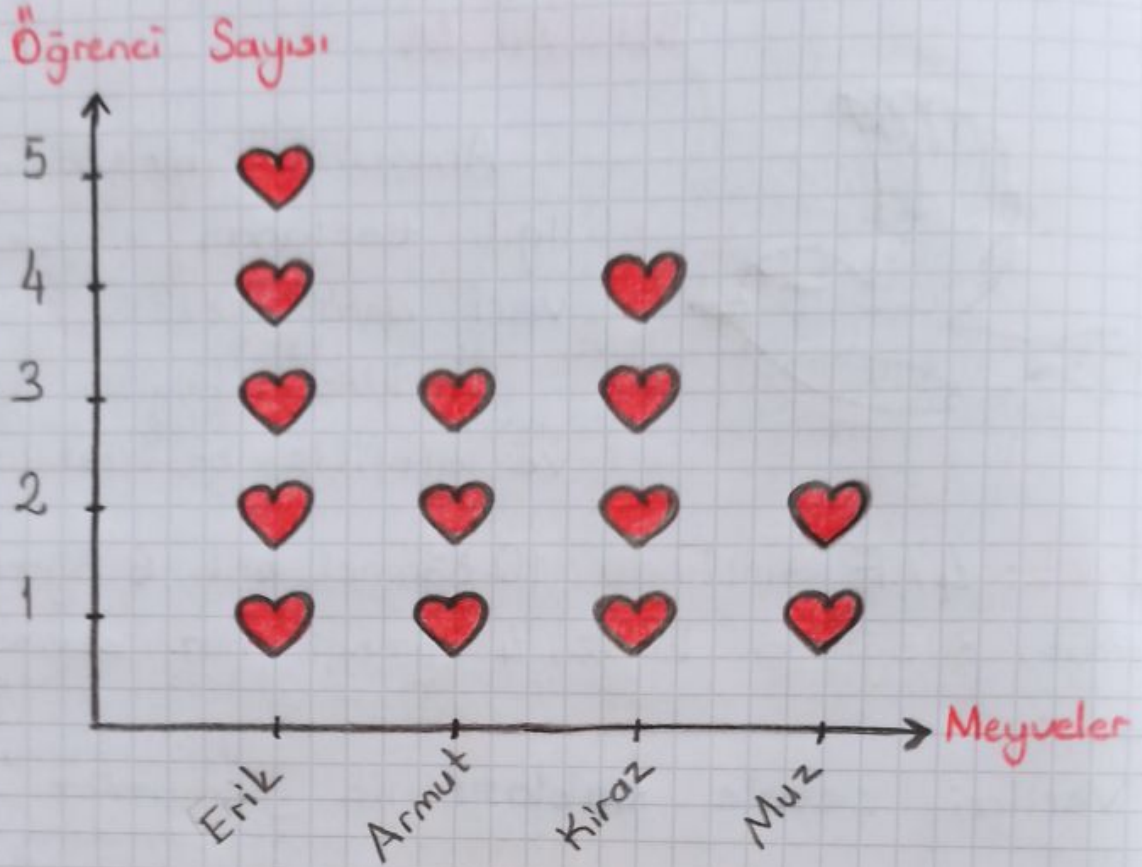 Öğrenci Sayısı
5
4
3
2
1
Meyveler
Erik
Armut
Kiraz
Muz